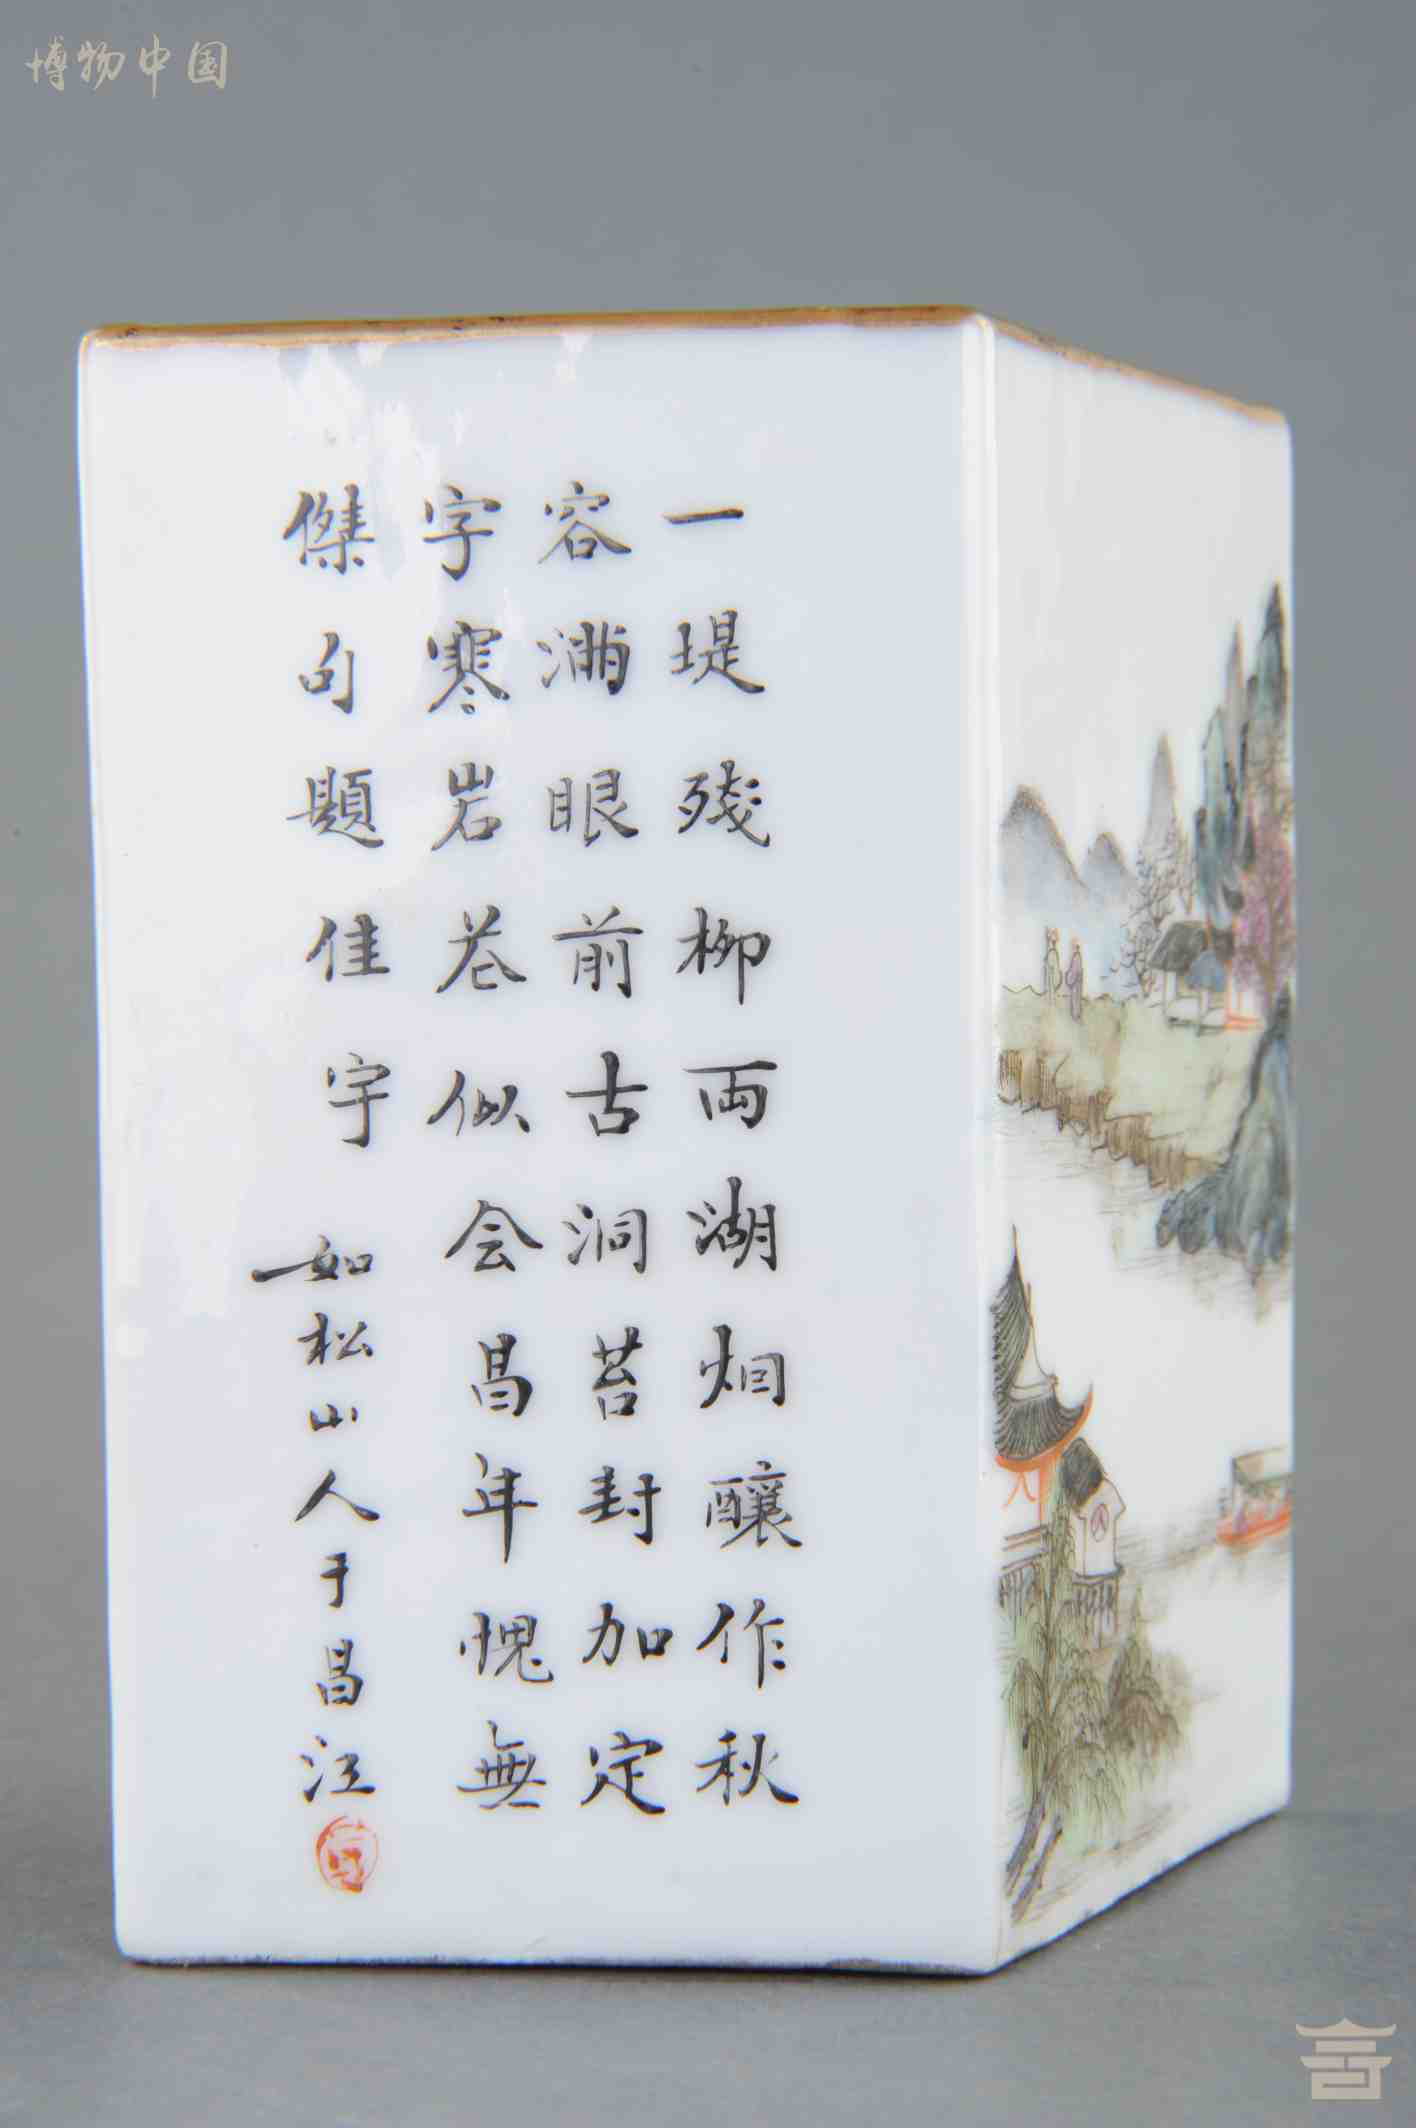 博物中国
一堤残柳両湖烟釀作秋
容满眼前古洞苔封加定
字寒岩花似会昌年愧無
傑句題佳宇
如松山人于昌江